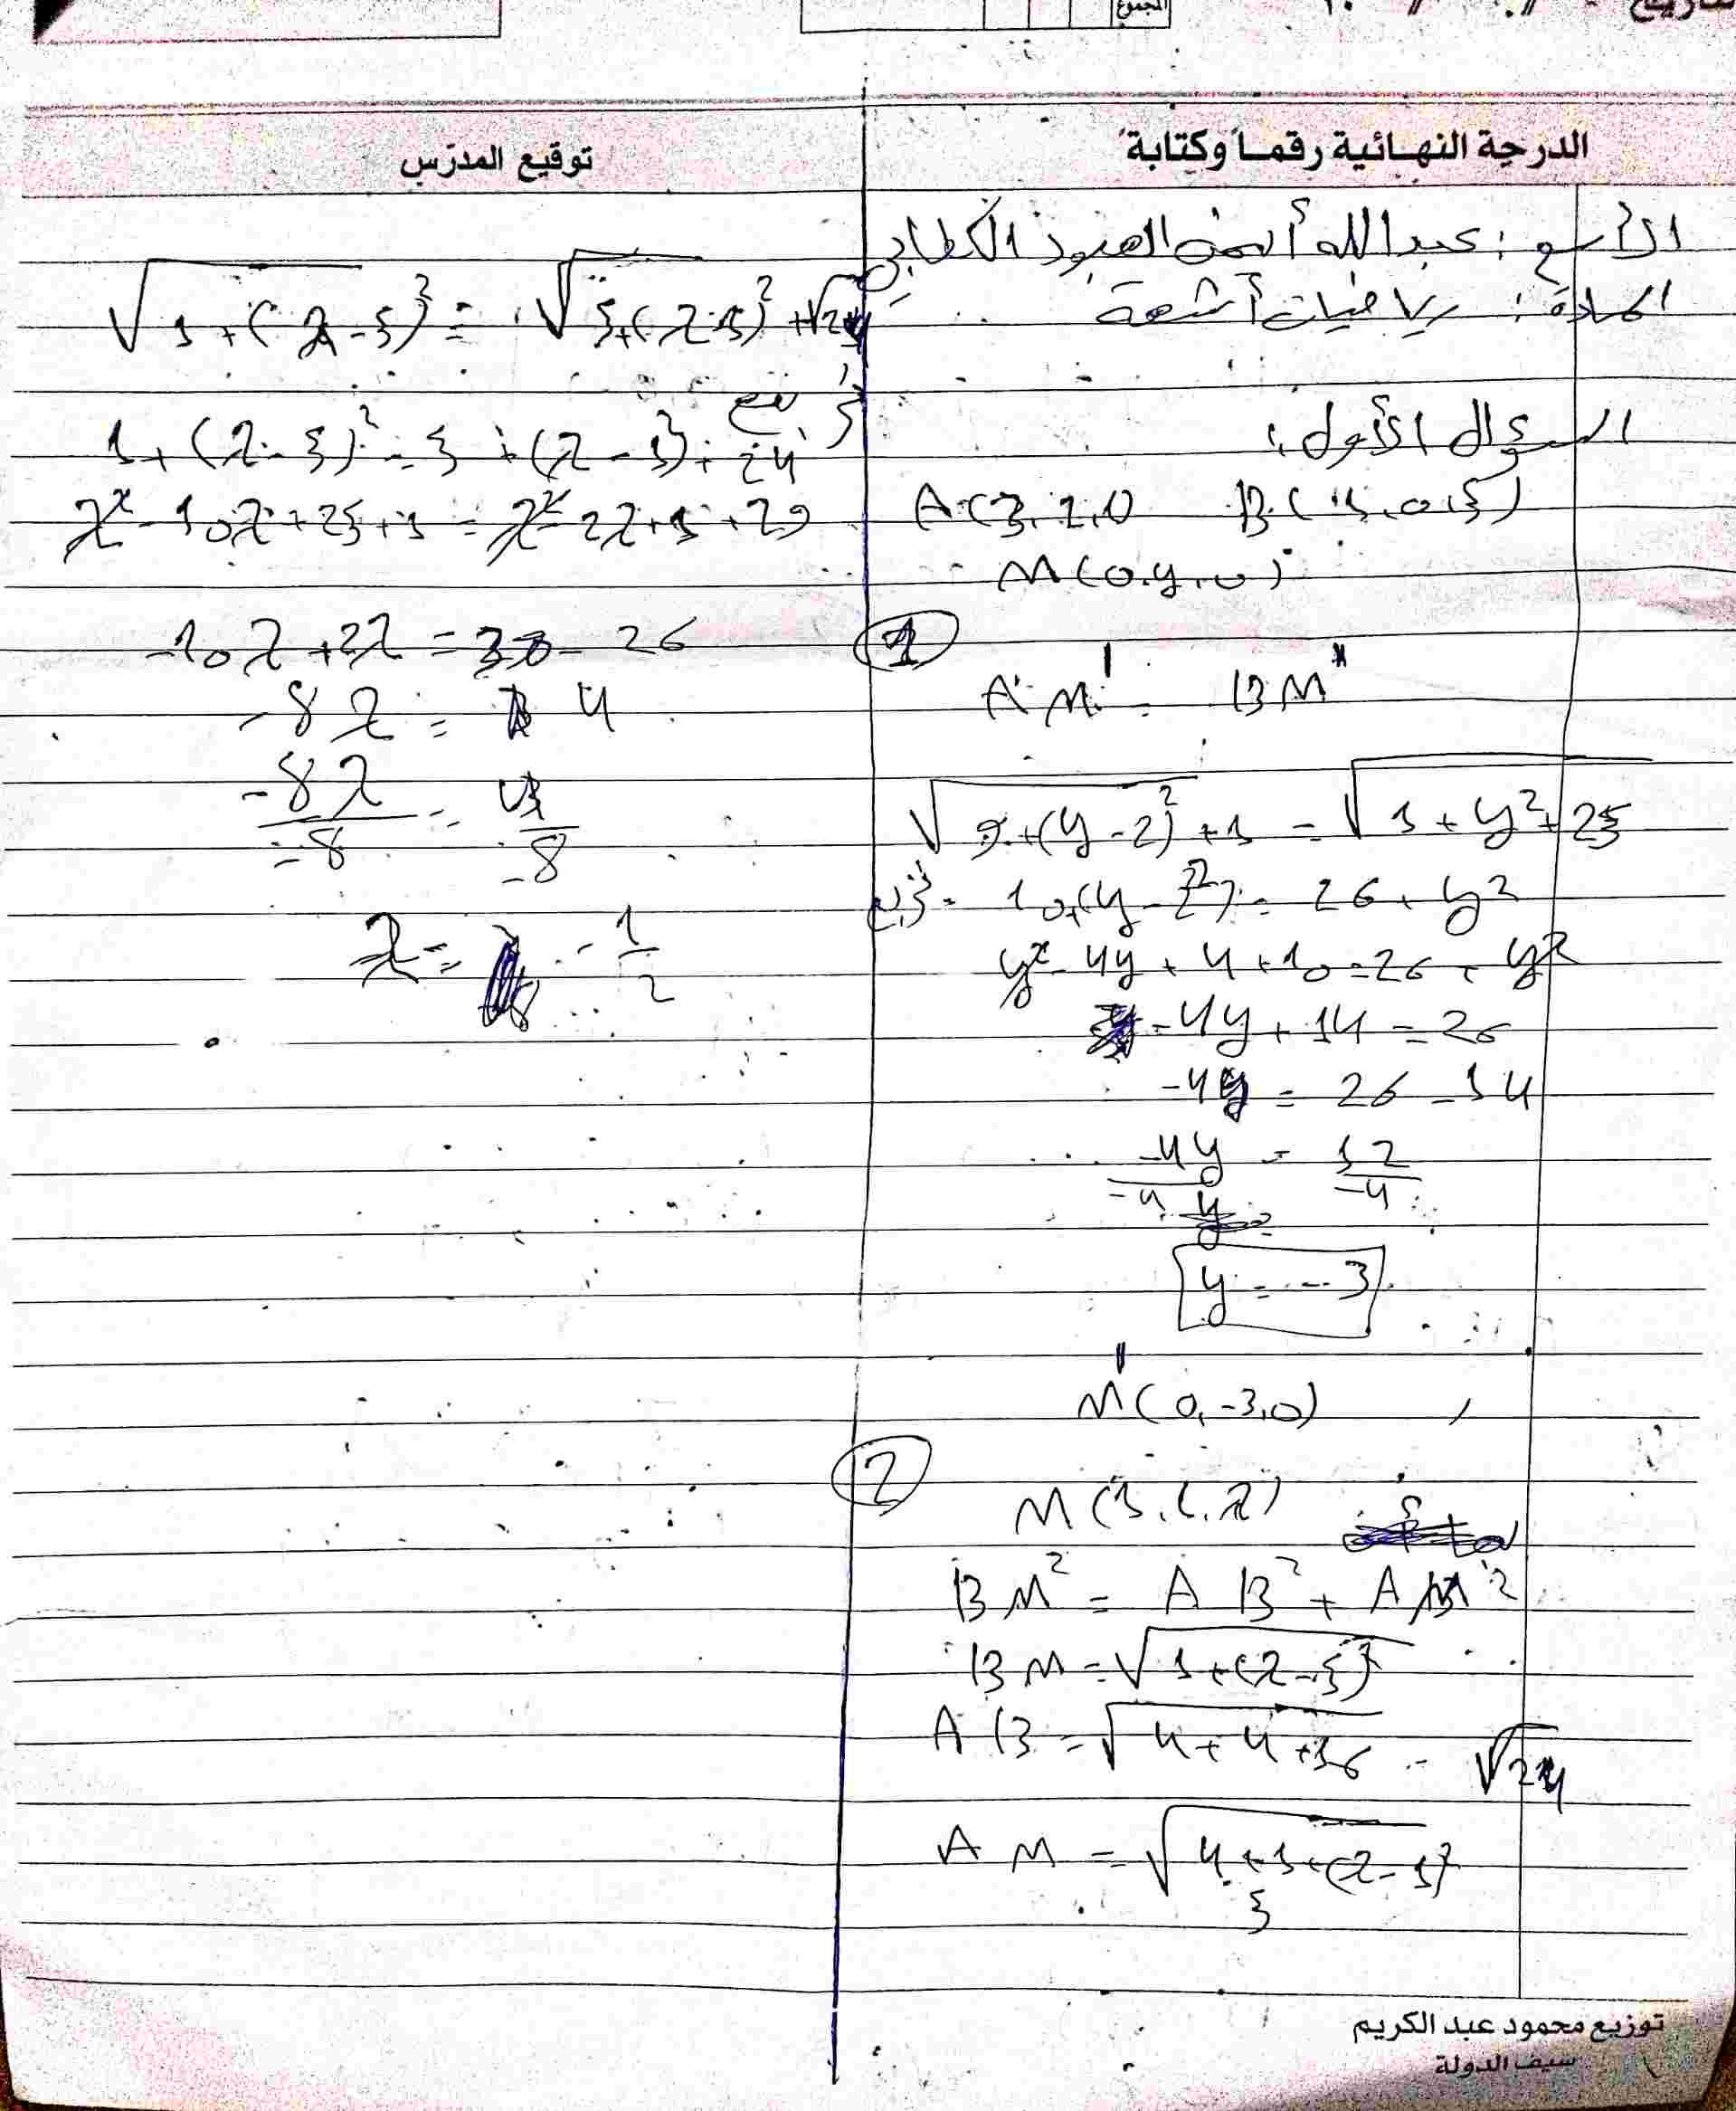 المجموع
الدرجة النهائية رقماً وكتابة
توقيع المدرّس
الأسم : عبدالله أيمن
المادة : رياضيات أشعة
السؤال الأول :
A(3,2,1) B(1,0,5)
M(0,y,0)
1
A M' = B M'
√9+(y-2)²+1 = √1+y²+25
10+(y-2)² = 26+y²
y²-4y+4+10=26+y²
-4y+14=26
-4y = 26-14
-4y/-4 = 12/-4
y = -3
M(0,-3,0)
2
M(1,1,λ)
BM² = AB² + AM²
BM = √1+(λ-5)²
AB = √4+4+16 = √24
AM = √4+1+(λ-1)²
5
√1+(λ-5)² = √5+(λ-1)² + √24
نربع
1+(λ-5)² = 5+(λ-1)²+24
λ²-10λ+25+1 = λ²-2λ+1+29
-10λ+2λ = 30-26
-8λ = 4
-8λ/-8 = 4/-8
λ = -1/2
توزيع محمود عبد الكريم
سيف الدولة